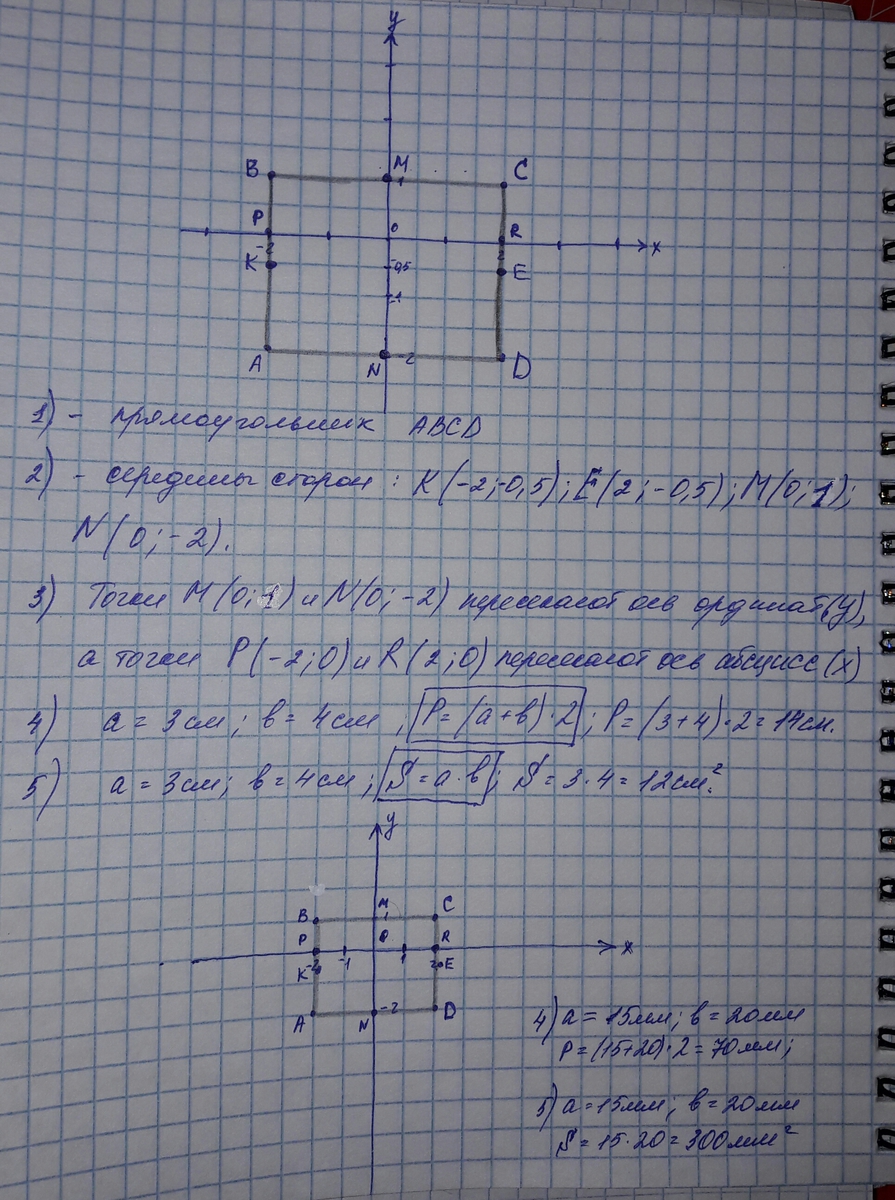 y
B M C
1
P 0 R x
-2 2
K -0,5 E
-1
A N -2 D
1) - прямоугольник ABCD
2) - середины сторон : K(-2;-0,5); E(2;-0,5); M(0;1);
N(0;-2).
3) Точки M(0;1) и N(0;-2) пересекают ось ординат(y),
а точки P(-2;0) и R(2;0) пересекают ось абсцисс(x)
4) a = 3см; в = 4см , P=(a+в)·2 ; P=(3+4)·2=14см.
5) a = 3см; в = 4см ; S=a·в ; S=3·4=12см².
y
B M C
1
P 0 R x
K -2 -1 1 2 E
A N -2 D
4) a = 15мм; в = 20мм
P=(15+20)·2=70мм;
5) a=15мм; в=20мм
S=15·20=300мм²